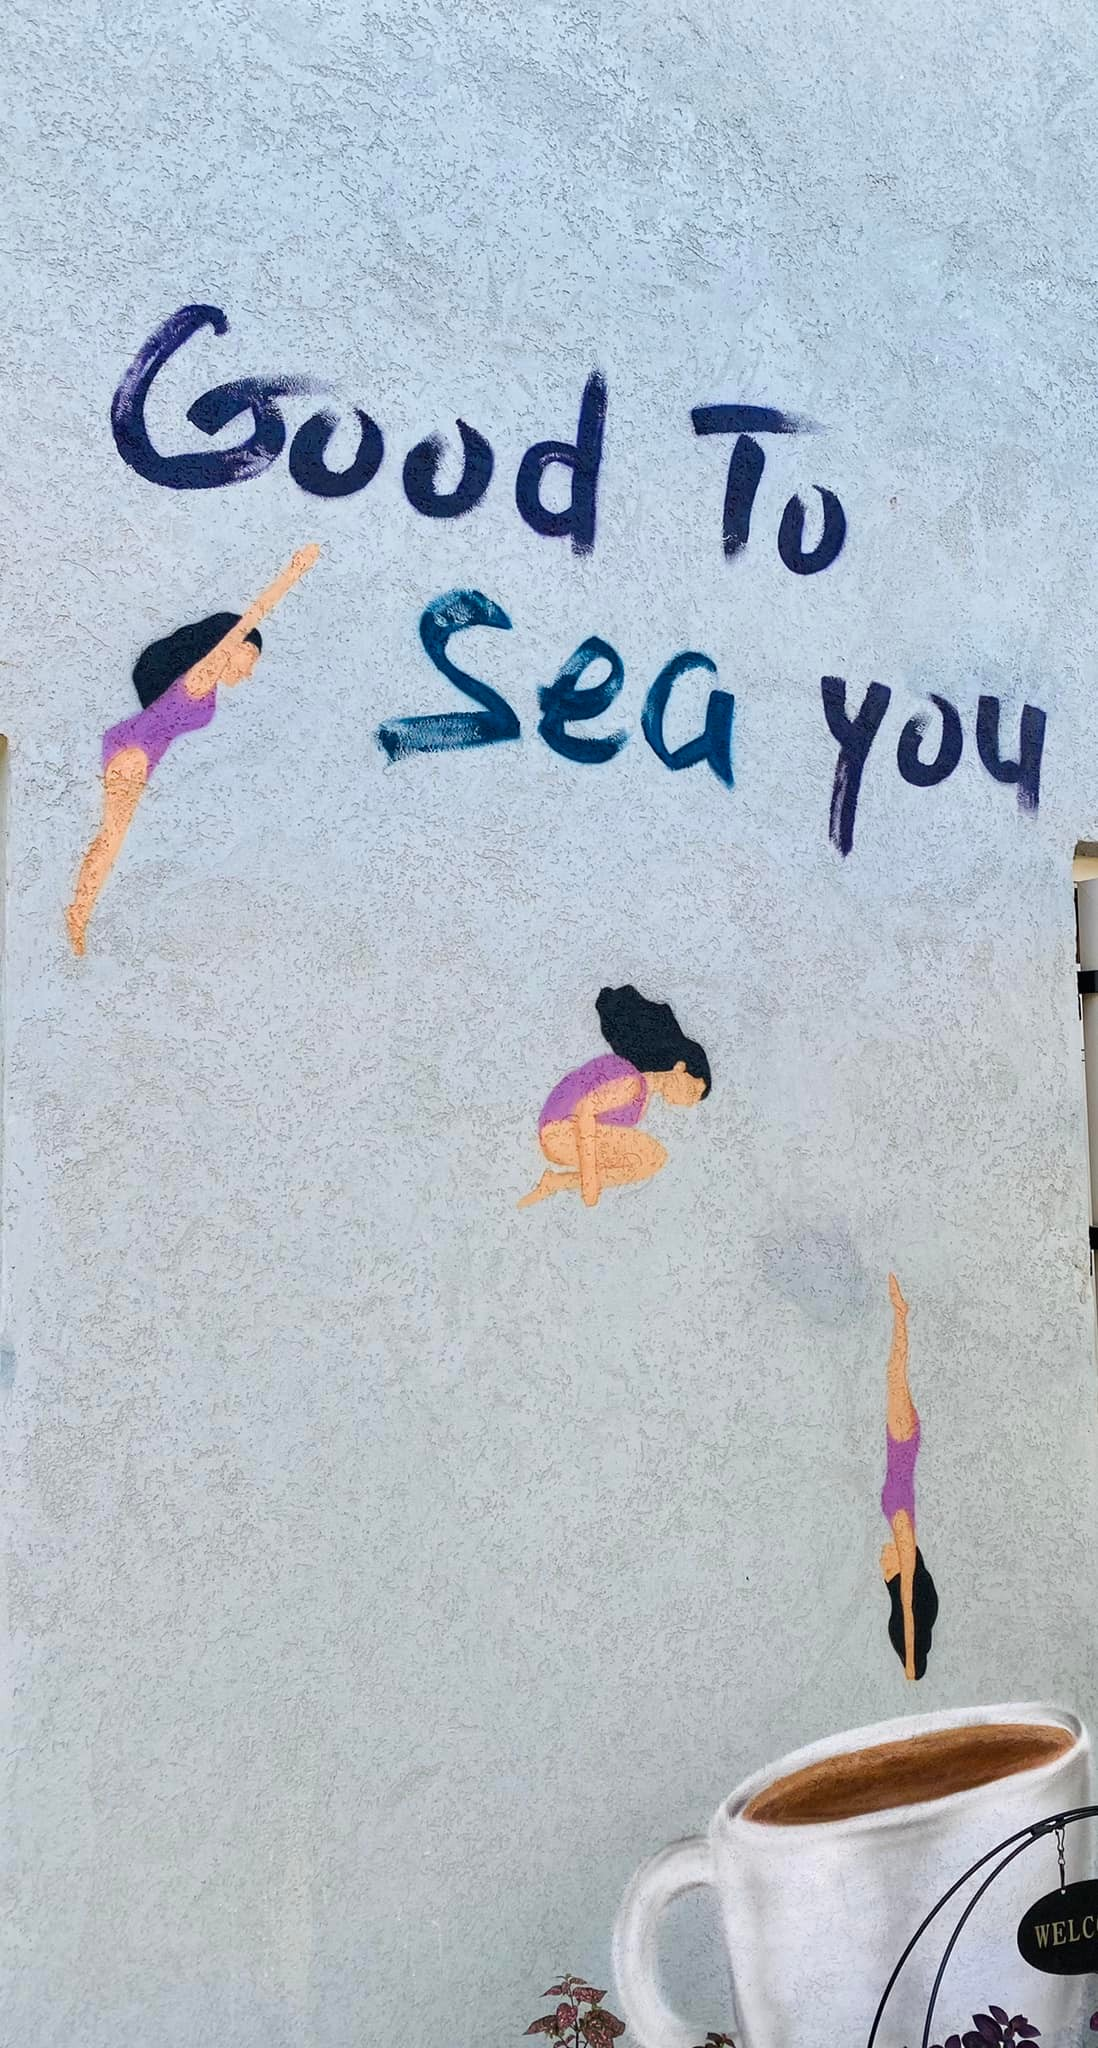 Good To
Sea you
WELCO